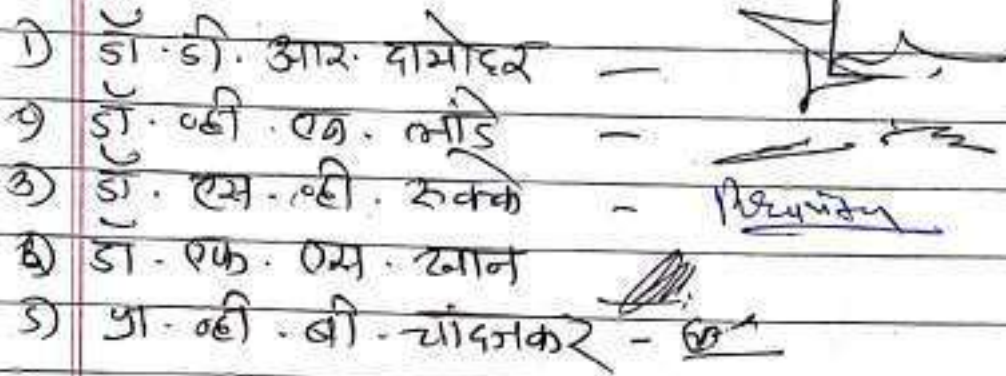 1) डॉ. डी. आर. दामोदर -
2) डॉ. व्ही. एन. लांडे -
3) डॉ. एस. व्ही. रुक्के -
4) डॉ. एफ. एस. खान
5) प्रा. व्ही. बी. चांदजकर -